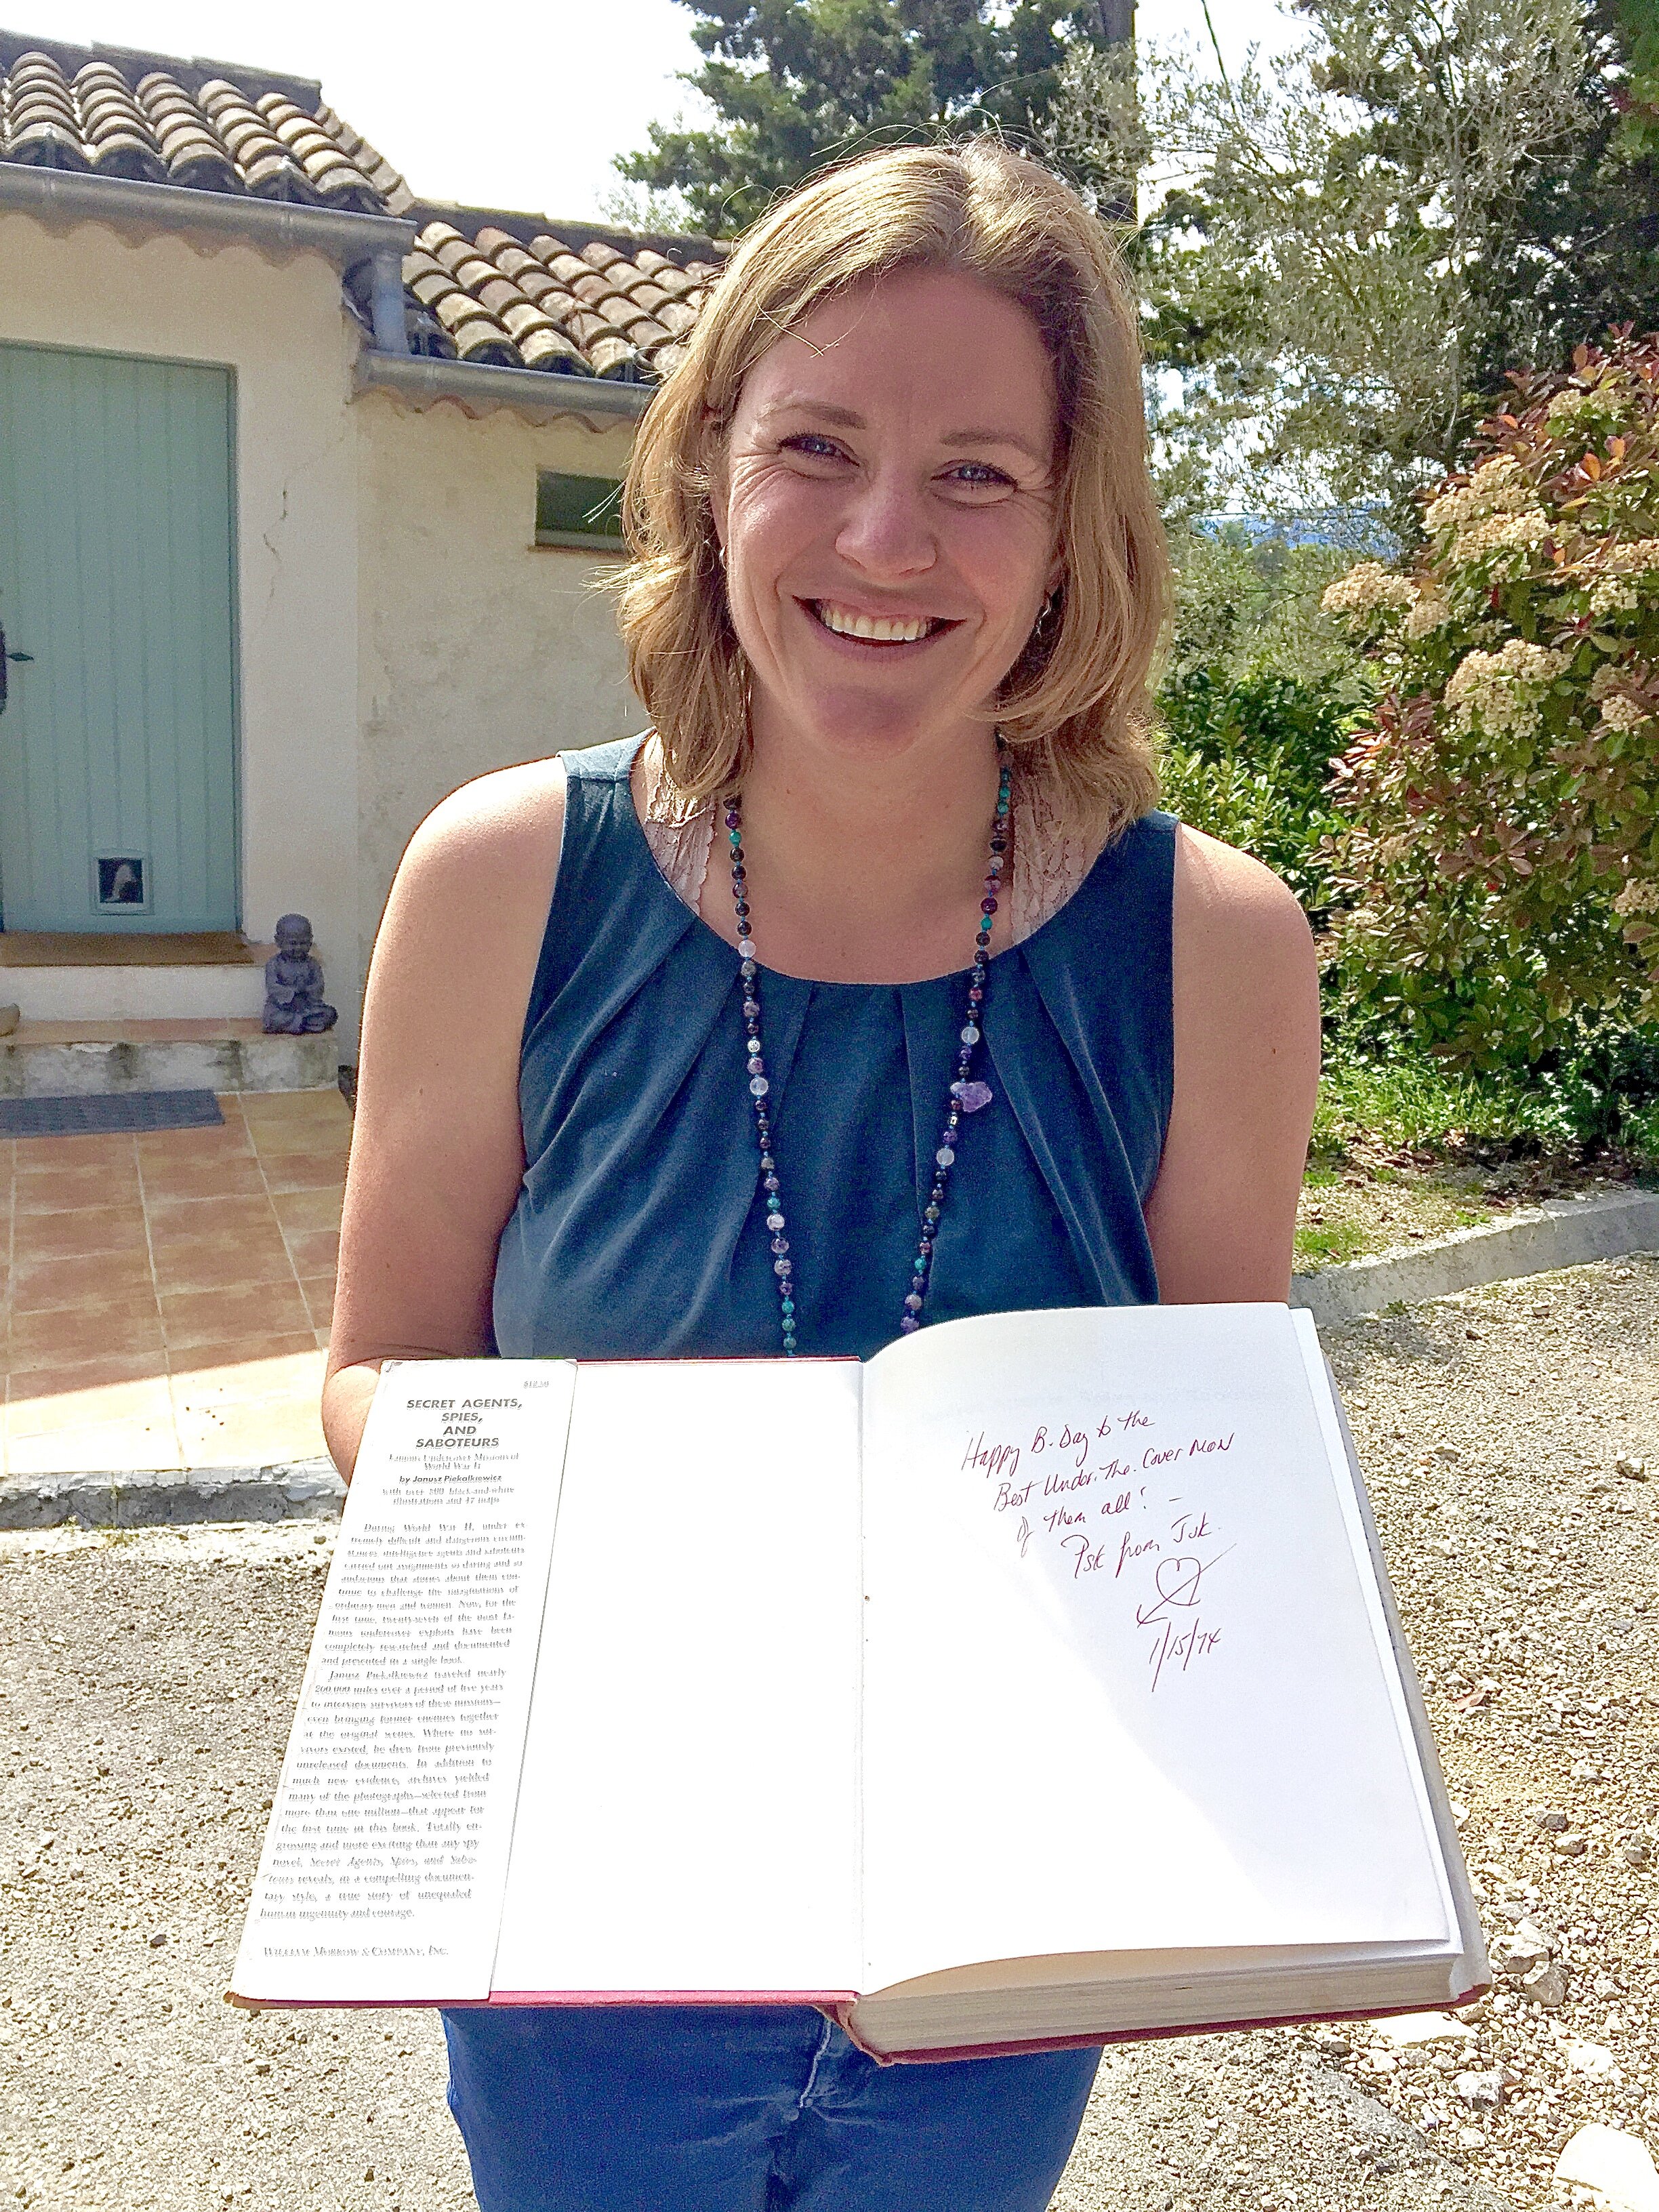 $12.50
SECRET AGENTS,
SPIES,
AND
SABOTEURS
Famous Undercover Missions of
World War II
by Janusz Piekalkiewicz
with over 500 black-and-white
illustrations and 47 maps
During World War II, under ex-
tremely difficult and dangerous circum-
stances, intelligence agents and saboteurs
carried out assignments so daring and so
audacious that stories about them con-
tinue to challenge the imaginations of
ordinary men and women. Now, for the
first time, twenty-seven of the most fa-
mous undercover exploits have been
completely researched and documented
and presented in a single book.
Janusz Piekalkiewicz traveled nearly
200,000 miles over a period of five years
to interview survivors of these missions—
even bringing former enemies together
at the original scenes. Where no sur-
vivors existed, he drew from previously
unreleased documents. In addition to
much new evidence, archives yielded
many of the photographs—selected from
more than one million—that appear for
the first time in this book. Totally en-
grossing and more exciting than any spy
novel, Secret Agents, Spies, and Sabo-
teurs reveals, in a compelling documen-
tary style, a true story of unequaled
human ingenuity and courage.
WILLIAM MORROW & COMPANY, INC.
Happy B. Day to the
Best Under. The. Cover MAN
of them all! —
from
1/15/74